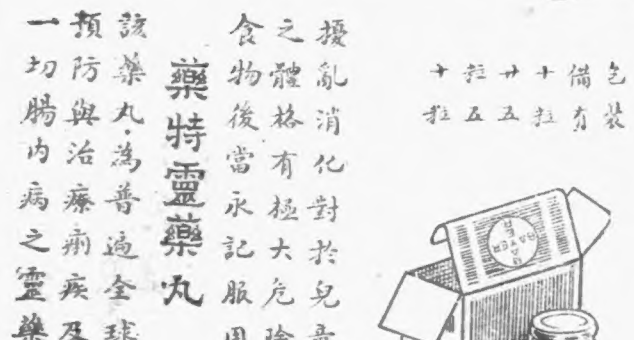 包裝
備有
十粒
廿五
粒五
十粒
BAYER
擾亂消化對於兒童
之體格有極大危險
食物後當永記服用
藥特靈藥丸
該藥丸·為普遍全球
預防與治療痢疾及
一切腸內病之靈藥